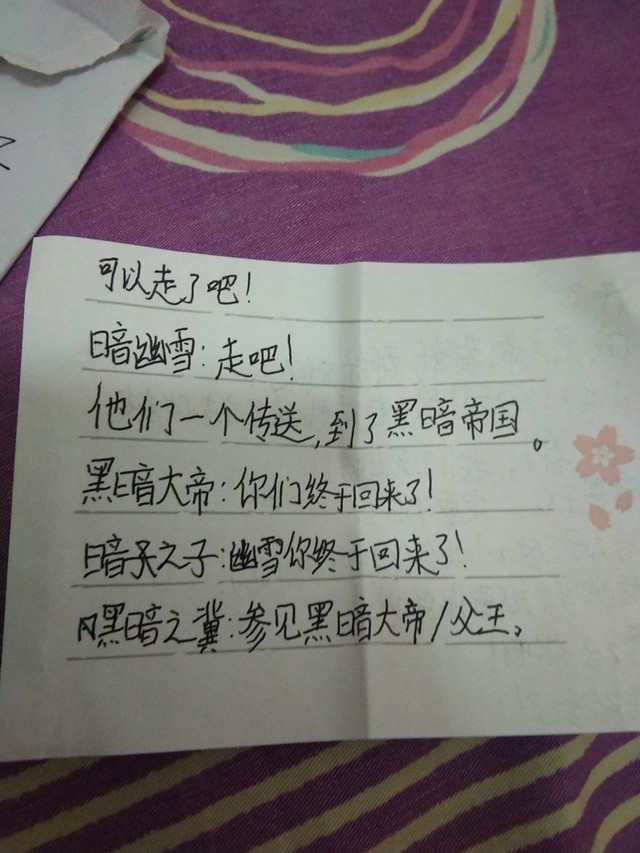 可以走了吧！
暗幽雪：走吧！
他们一个传送，到了黑暗帝国。
黑暗大帝：你们终于回来了！
暗之子：幽雪你终于回来了！
黑暗之冀：参见黑暗大帝/父王。